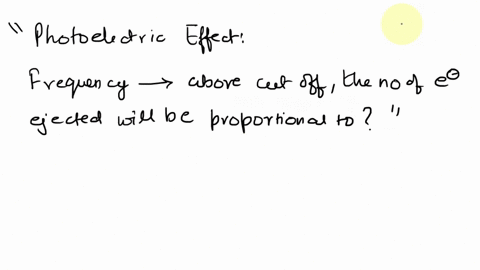 " Photoelectric Effect:
Frequency → above cut off, the no of e⊖
ejected will be proportional to? "